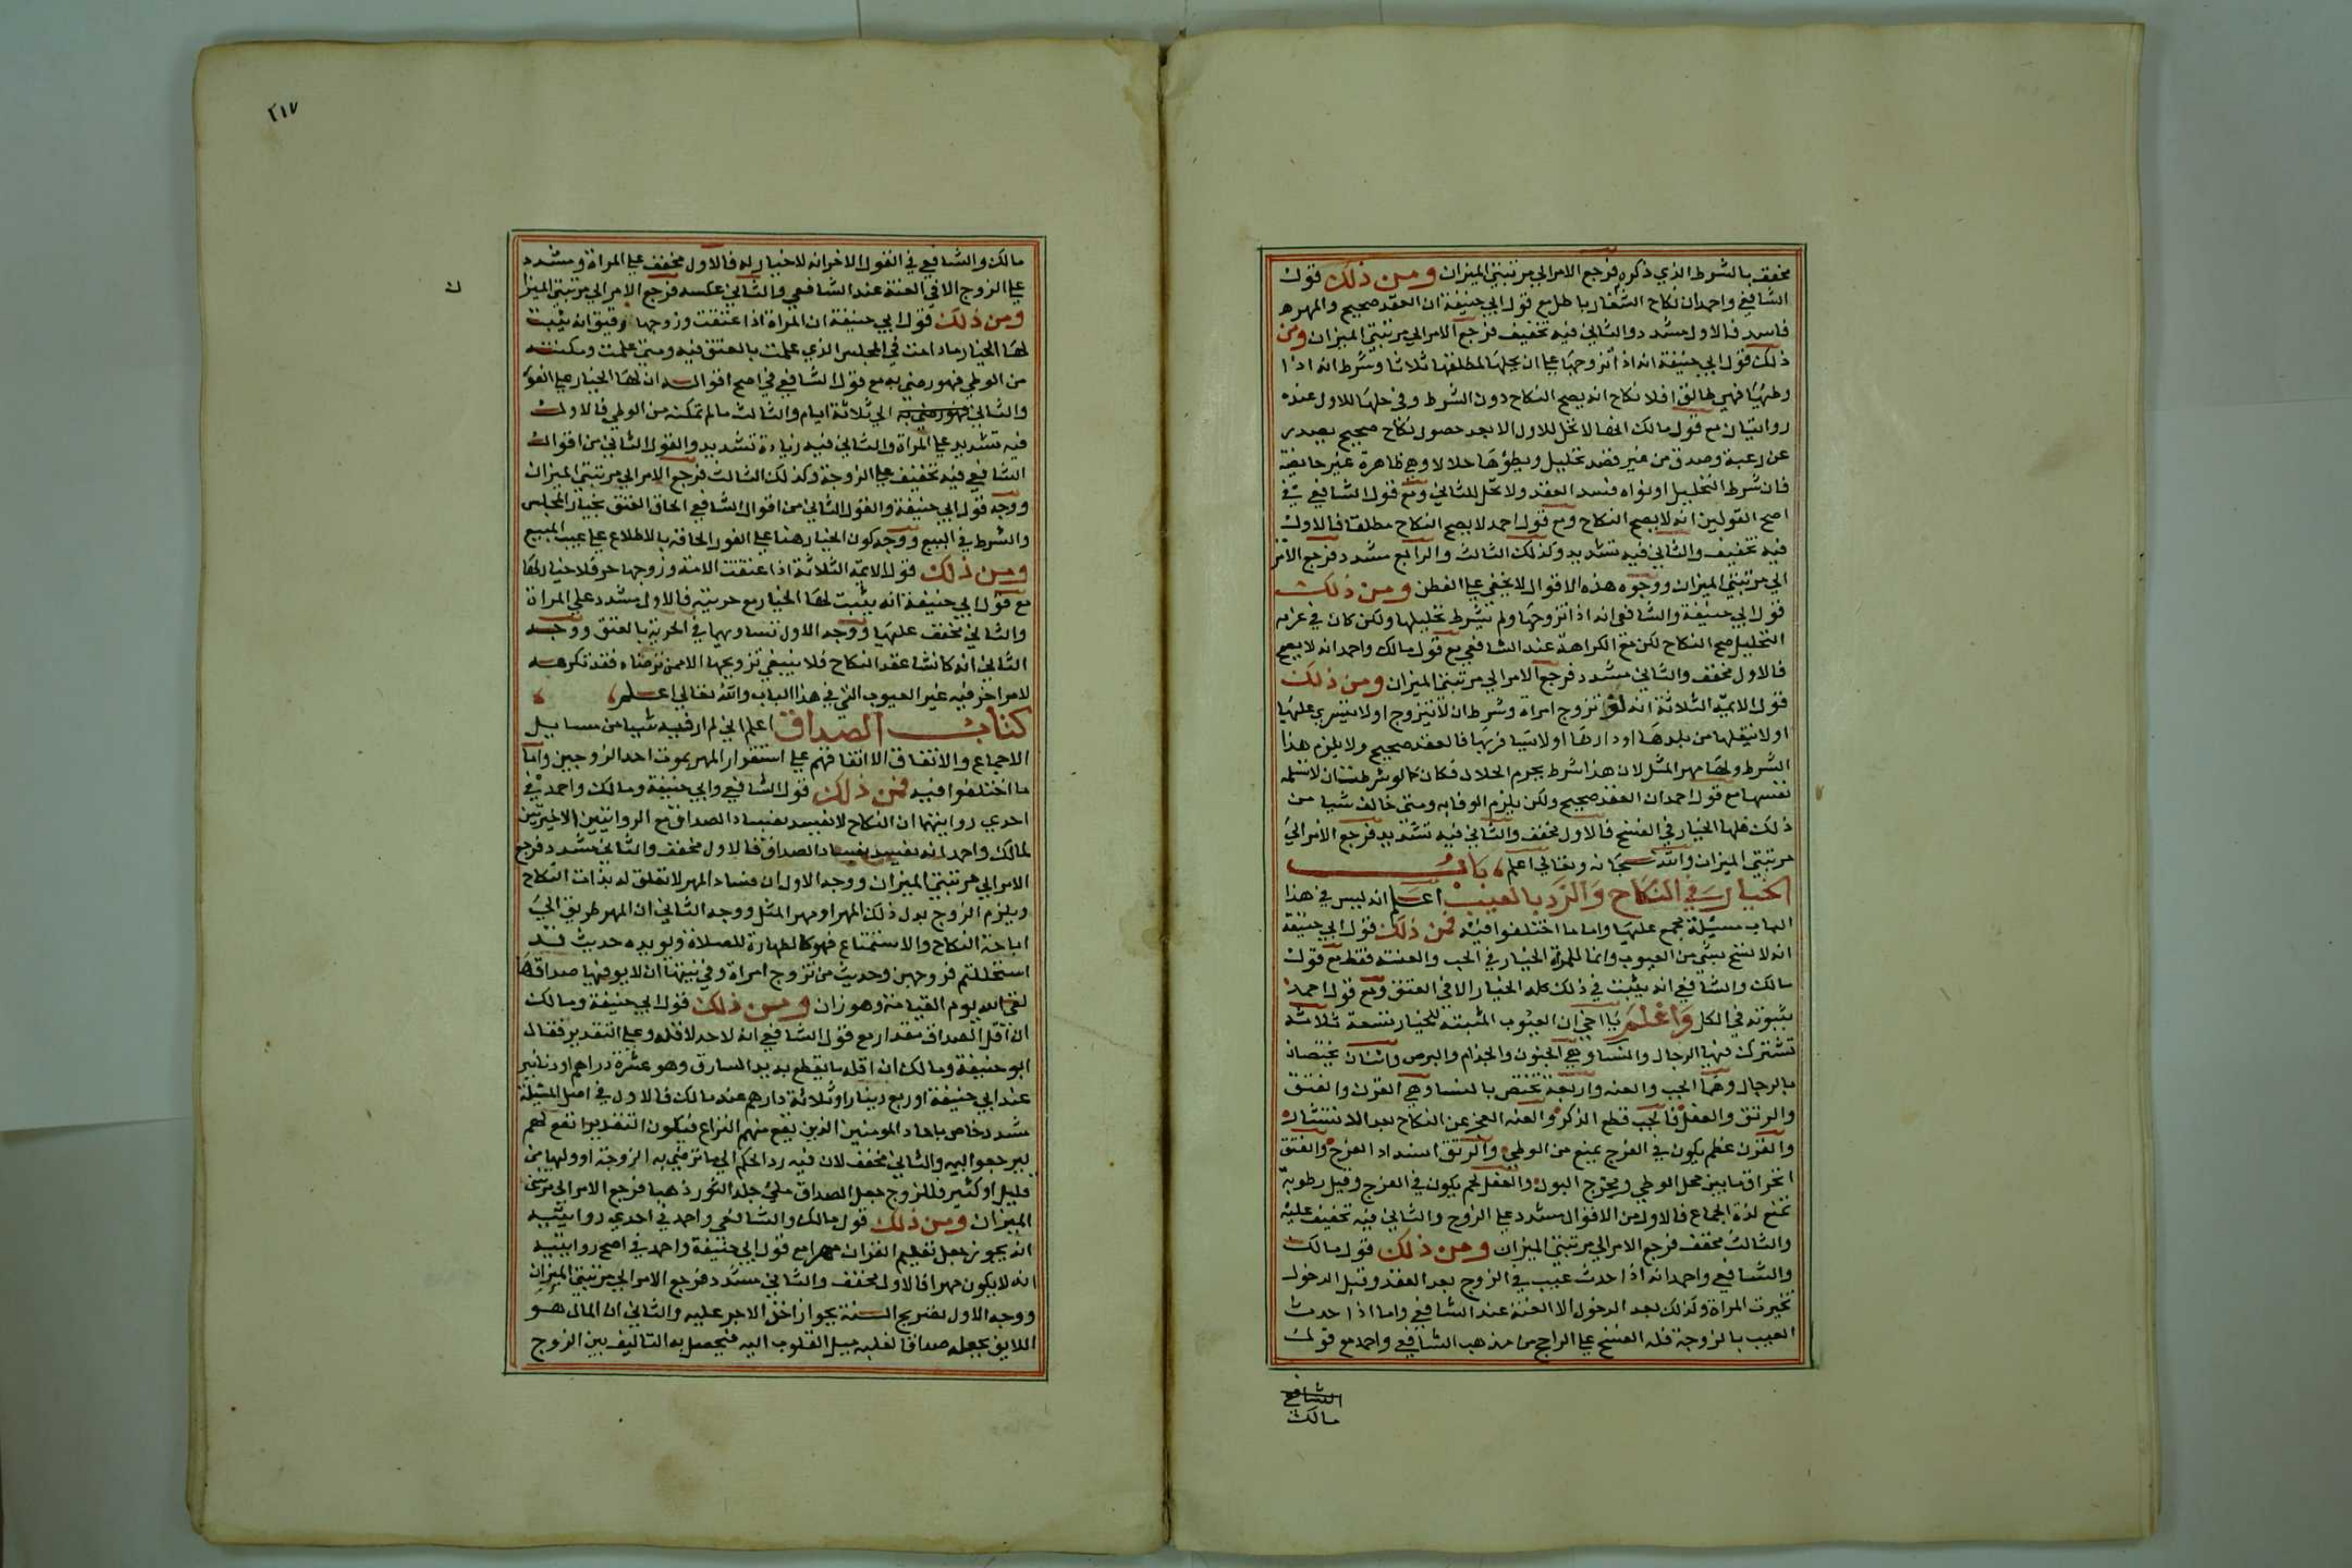 مخفف بالشرط الذي ذكره فرجع الامر الي مرتبتي الميزان ومن ذلك قول
الشافعي واحمد ان نكاح الشغار باطل مع قول ابي حنيفة ان العقد صحيح والمهر
فاسد فالاول مشدد والثاني فيه تخفيف فرجع الامر الي مرتبتي الميزان ومن
ذلك قول ابي حنيفة انه اذا تزوجها علي ان يحلها لمطلقها ثلاثا وشرط انه اذا
وطئها فهي طالق او فلا نكاح انه يصح النكاح دون الشرط وفي حلها للاول عنده
روايتان مع قول مالك انها لا تحل للاول الا بعد حصول نكاح صحيح يصدر
عن رغبة وصدق من غير قصد تحليل ويطؤها حلالا وهي طاهرة غير حايضة
فان شرط التحليل او نواه فسد العقد ولا تحل للثاني ومع قول الشافعي في
اصح القولين انه لا يصح النكاح ومع قول احمد لا يصح النكاح مطلقا فالاول
فيه تخفيف والثاني فيه تشديد وكذلك الثالث والرابع مشدد فرجع الامر
الي مرتبتي الميزان ووجوه هذه الاقوال لا يخفي علي الفطن ومن ذلك
قول ابي حنيفة والشافعي انه اذا تزوجها ولم يشرط تحليلها ولكن كان في عزمه
التحليل صح النكاح لكن مع الكراهة عند الشافعي مع قول مالك واحمد انه لا يصح
فالاول مخفف والثاني مشدد فرجع الامر الي مرتبتي الميزان ومن ذلك
قول الايمة الثلاثة انه لو تزوج امراة وشرط ان لا يتزوج او لا يتسري عليها
او لا ينقلها من بلدها او دارها او لا يسافر بها فالعقد صحيح ولا يلزم هذا
الشرط ولها مهر المثل لان هذا شرط يحرم الحلال فكان كما لو شرطت ان لا تسلمه
نفسها مع قول احمد ان العقد صحيح ولكن يلزم الوفا به ومتي خالف شيا من
ذلك فلها الخيار في الفسخ فالاول مخفف والثاني فيه تشديد فرجع الامر الي
مرتبتي الميزان والله سبحانه وتعالي اعلم باب
الخيار في النكاح والرد بالعيب اعلم انه ليس في هذا
الباب مسيلة مجمع عليها واما ما اختلفوا فيه فمن ذلك قول ابي حنيفة
انه لا فسخ بشي من العيوب وانما للمراة الخيار في الجب والعنه فقط مع قول
مالك والشافعي انه يثبت في ذلك كله الخيار الا في الفتق ومع قول احمد
بثبوته في الكل واعلم يا اخي ان العيوب المثبتة للخيار تسعة ثلاثة
تشترك فيها الرجال والنسا وهي الجنون والجذام والبرص واثنان يختصان
بالرجال وهما الجب والعنه واربعة تختص بالنسا وهي القرن والفتق
والرتق والعفل فالجب قطع الذكر والعنه العجز عن النكاح لعدم الانتشار
والقرن عظم يكون في الفرج يمنع من الوطي والرتق انسداد الفرج والفتق
انخراق ما بين محل الوطي ومخرج البول والعفل لحم يكون في الفرج وقيل رطوبة
تمنع لذة الجماع فالاول من الاقوال مشدد علي الزوج والثاني فيه تخفيف عليه
والثالث مخفف فرجع الامر الي مرتبتي الميزان ومن ذلك قول مالك
والشافعي واحمد انه اذا حدث عيب في الزوج بعد العقد وقبل الدخول
تخيرت المراة وكذلك بعد الدخول الا العنة عند الشافعي واما اذا حدث
العيب بالزوجة فله الفسخ علي الراجح من مذهب الشافعي واحمد مع قول
الشافعي
مالك
٢١٧
مالك والشافعي في القول الاخر انه لا خيار له فالاول مخفف علي المراة ومشدد
علي الزوج الا في العنة عند الشافعي والثاني عكسه فرجع الامر الي مرتبتي الميزا
ومن ذلك قول ابي حنيفة ان المراة اذا عتقت وزوجها رقيق انه يثبت
لها الخيار ما دامت في المجلس الذي علمت بالعتق فيه ومتي علمت ومكنته
من الوطي فهو رضي به مع قول الشافعي في اصح اقواله ان لها الخيار علي الفور
والثاني فهو رضي به الي ثلاثة ايام والثالث ما لم تمكنه من الوطي فالاول
فيه تشديد علي المراة والثاني فيه زيادة تشديد والقول الثاني من اقوال
الشافعي فيه تخفيف علي الزوجة وكذلك الثالث فرجع الامر الي مرتبتي الميزان
ووجه قول ابي حنيفة والقول الثاني من اقوال الشافعي الحاق العتق بخيار المجلس
والشرط في البيع ووجه كون الخيار هنا علي الفور الحاقه بالاطلاع علي عيب المبيع
ومن ذلك قول الايمة الثلاثة اذا عتقت الامة وزوجها حر فلا خيار لها
مع قول ابي حنيفة انه يثبت لها الخيار مع حريته فالاول مشدد علي المراة
والثاني مخفف عليها ووجه الاول تساويهما في الحرية بالعتق ووجه
الثاني انه كانشا عقد النكاح فلا ينبغي تزويجها الا ممن ترضاه فقد تكرهه
لامر اخر فيه غير العيوب التي في هذا الباب والله تعالي اعلم
كتاب الصداق اعلم اني لم ار فيه شيا من مسايل
الاجماع والاتفاق الا اتفاقهم علي استقرار المهر بموت احد الزوجين واما
ما اختلفوا فيه فمن ذلك قول الشافعي وابي حنيفة ومالك واحمد في
احدي روايتهما ان النكاح لا يفسد بفساد الصداق مع الروايتين الاخيرتين
لمالك واحمد انه يفسد بفساد الصداق فالاول مخفف والثاني مشدد فرجع
الامر الي مرتبتي الميزان ووجه الاول ان فساد المهر لا تعلق له بذات النكاح
ويلزم الزوج بدل ذلك المهر او مهر المثل ووجه الثاني ان المهر طريق الي
اباحة النكاح والاستمتاع فهو كالطهارة للصلاة ويويده حديث قد
استحللتم فروجهن وحديث من تزوج امراة وفي نيته ان لا يوفيها صداقها
لقي الله يوم القيامة وهو زان ومن ذلك قول ابي حنيفة ومالك
ان اقل الصداق مقدار مع قول الشافعي انه لا حد لاقله وعلي التقدير فقال
ابو حنيفة ومالك ان اقله ما يقطع به يد السارق وهو عشرة دراهم او دنانير
عند ابي حنيفة او ربع دينار او ثلاثة دراهم عند مالك فالاول في اصل المسيلة
مشدد خاص باحاد المومنين الذين يقع منهم النزاع فيكون التقدير انفع لهم
ليرجعوا اليه والثاني مخفف لان فيه رد الحكم الي ما ترضي به الزوجة او وليها من
قليل او كثير فللزوج جعل الصداق ملي جلد الثور ذهبا فرجع الامر الي مرتبتي
الميزان ومن ذلك قول مالك والشافعي واحمد في احدي روايتيه
انه يجوز جعل تعليم القران مهرا مع قول ابي حنيفة واحمد في اصح روايتيه
انه لا يكون مهرا فالاول مخفف والثاني مشدد فرجع الامر الي مرتبتي الميزان
ووجه الاول تصريح السنة بجواز اخذ الاجر عليه والثاني ان المال هو
اللايق بجعله صداقا لغلبة ميل القلوب اليه فيحصل به التاليف بين الزوج